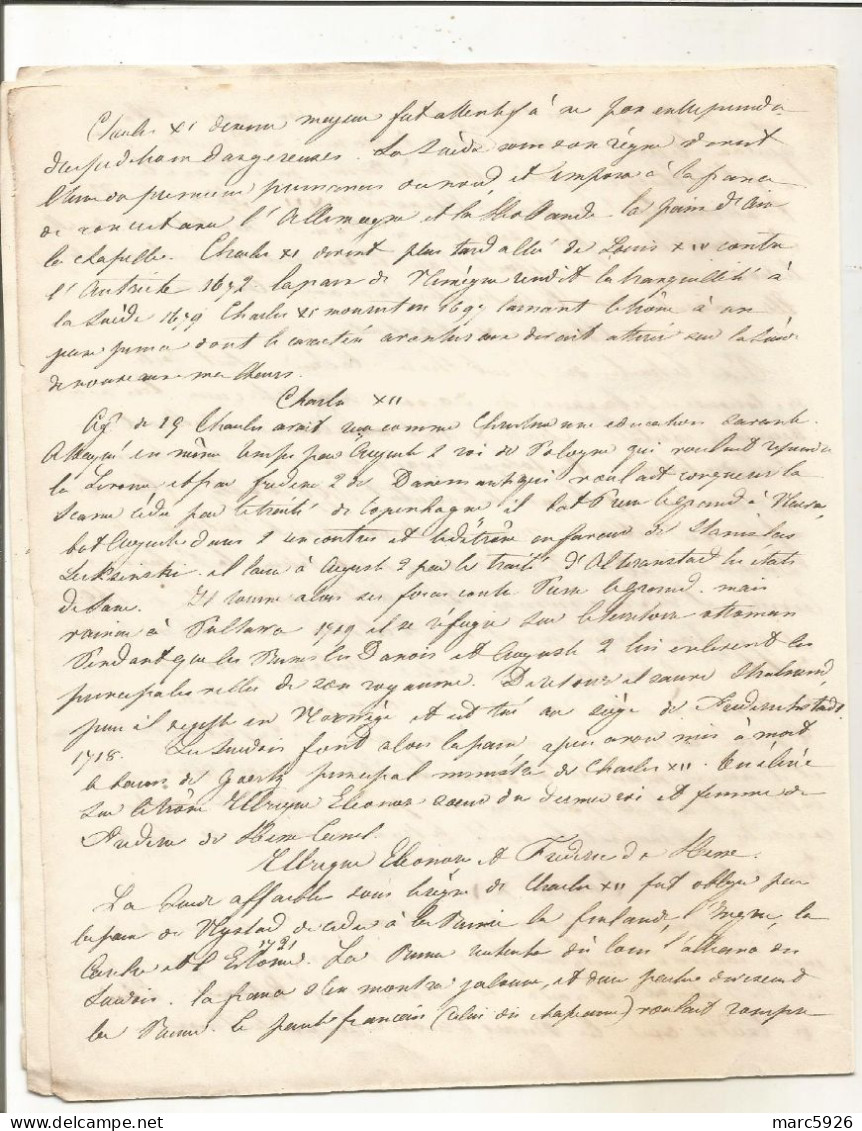 Charles XI devenu majeur fut attentif à ne pas entreprendre
dangereuses. La Suède sous son règne devint
l'une des premières puissances du nord, et imposa à la france
de concert avec l'Allemagne et la Hollande la paix d'Aix
la chapelle. Charles XI devint plus tard allié de Louis XIV contre
l'Autriche 1672 la paix de Nimègue rendit la tranquillité à
la Suède 1679 Charles XI mourut en 1697 laissant le trône à un
jeune prince dont le caractère aventureux devait attirer sur la Suède
de nouveaux malheurs.
Charles XII
Agé de 19 Charles avait reçu comme Christine une education savante.
Attaqué en même temps par Auguste 2 roi de Pologne qui voulait reprendre
la Livonie et par frederic 2 de Danemark qui voulait conquérir la
Scanie cédée par le traité de Copenhague il bat Pierre le grand à Narva,
bat Auguste dans 2 rencontres et le détrône en faveur de Stanislas
Lecksinski. il laisse à Auguste 2 par le traité d'Altranstad les états
de Saxe. Il tourne alors ses forces contre Pierre le grand. mais
vaincu à Pultawa 1709 il se réfugie sur le territoire ottoman
Pendant que les Russes les Danois et Auguste 2 lui enlèvent les
principales villes de son royaume. De retour il sauve Stralsund,
puis il rejette en Norwège et est tué au siège de Frederichstadt
1718. Les Suédois font alors la paix, après avoir mis à mort
le baron de Goertz principal ministre de Charles XII. On élève
sur le trône Ulrique Eléonor soeur du dernier roi et femme de
Frederic de Hesse Cassel.
Ulrique Eleonore et Frederic de Hesse.
La Suède affaiblie sous le règne de Charles XII fut obligée par
la paix de Nystad de céder à la Russie la finlande, l'Ingrie, la
Carélie et l'Estonie. 1721 La Russie dès lors l'alliance des
Suédois. la france s'en montra jalouse, et deux partis divisent
les Russes. le parti français (celui des chapeaux) voulait rompre
marc5926